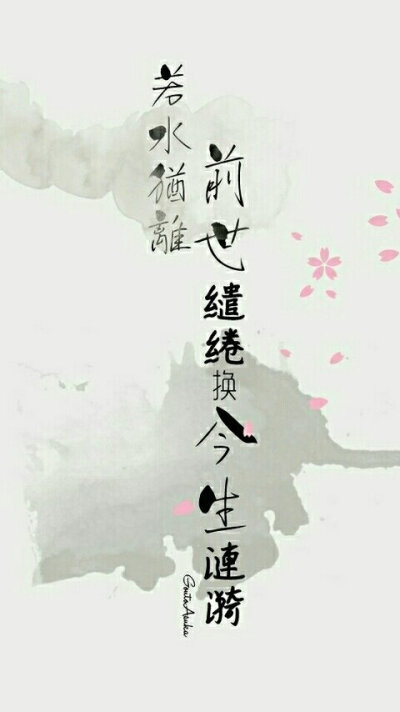 前世繾綣换今生漣漪
若水猶離
GmtoAsuka